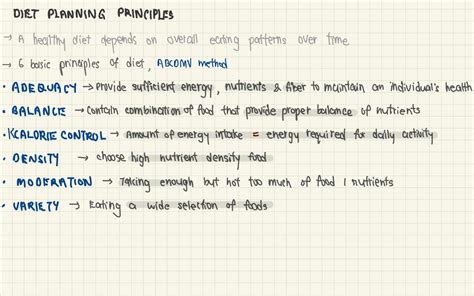 DIET PLANNING PRINCIPLES
→ A healthy diet depends on overall eating patterns over time
→ 6 basic principles of diet, ABCDMV method
• ADEQUACY → Provide sufficient energy, nutrients & fiber to maintain an individual's health
• BALANCE → Contain combination of food that provide proper balance of nutrients
• KCALORIE CONTROL → Amount of energy intake = energy required for daily activity
• DENSITY → choose high nutrient density food
• MODERATION → Taking enough but not too much of food / nutrients
• VARIETY → Eating a wide selection of foods